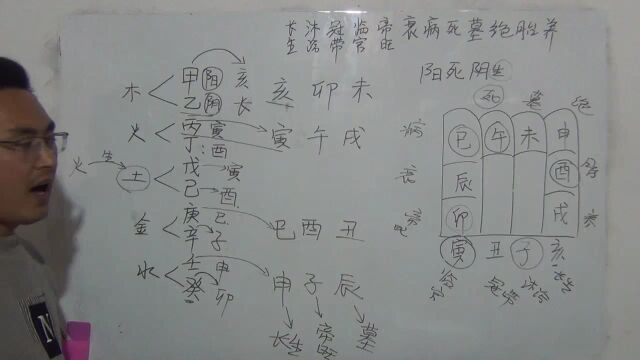 长沐冠临帝衰病死墓绝胎养
生浴带官旺
阳死阴生
木 甲 阳 亥 亥 卯 未
乙 阴 长
火 丙 寅 寅 午 戌
丁:酉
火 生 土 戊 寅
己 酉
金 庚 巳 巳 酉 丑
辛 子
水 壬 申 申 子 辰
癸 卯
长生 帝旺 墓
死 墓 绝
病 巳 午 未 申
衰 辰 酉
帝旺 卯 戌 养
寅 丑 子 亥
临官 冠带 沐浴 长生
N